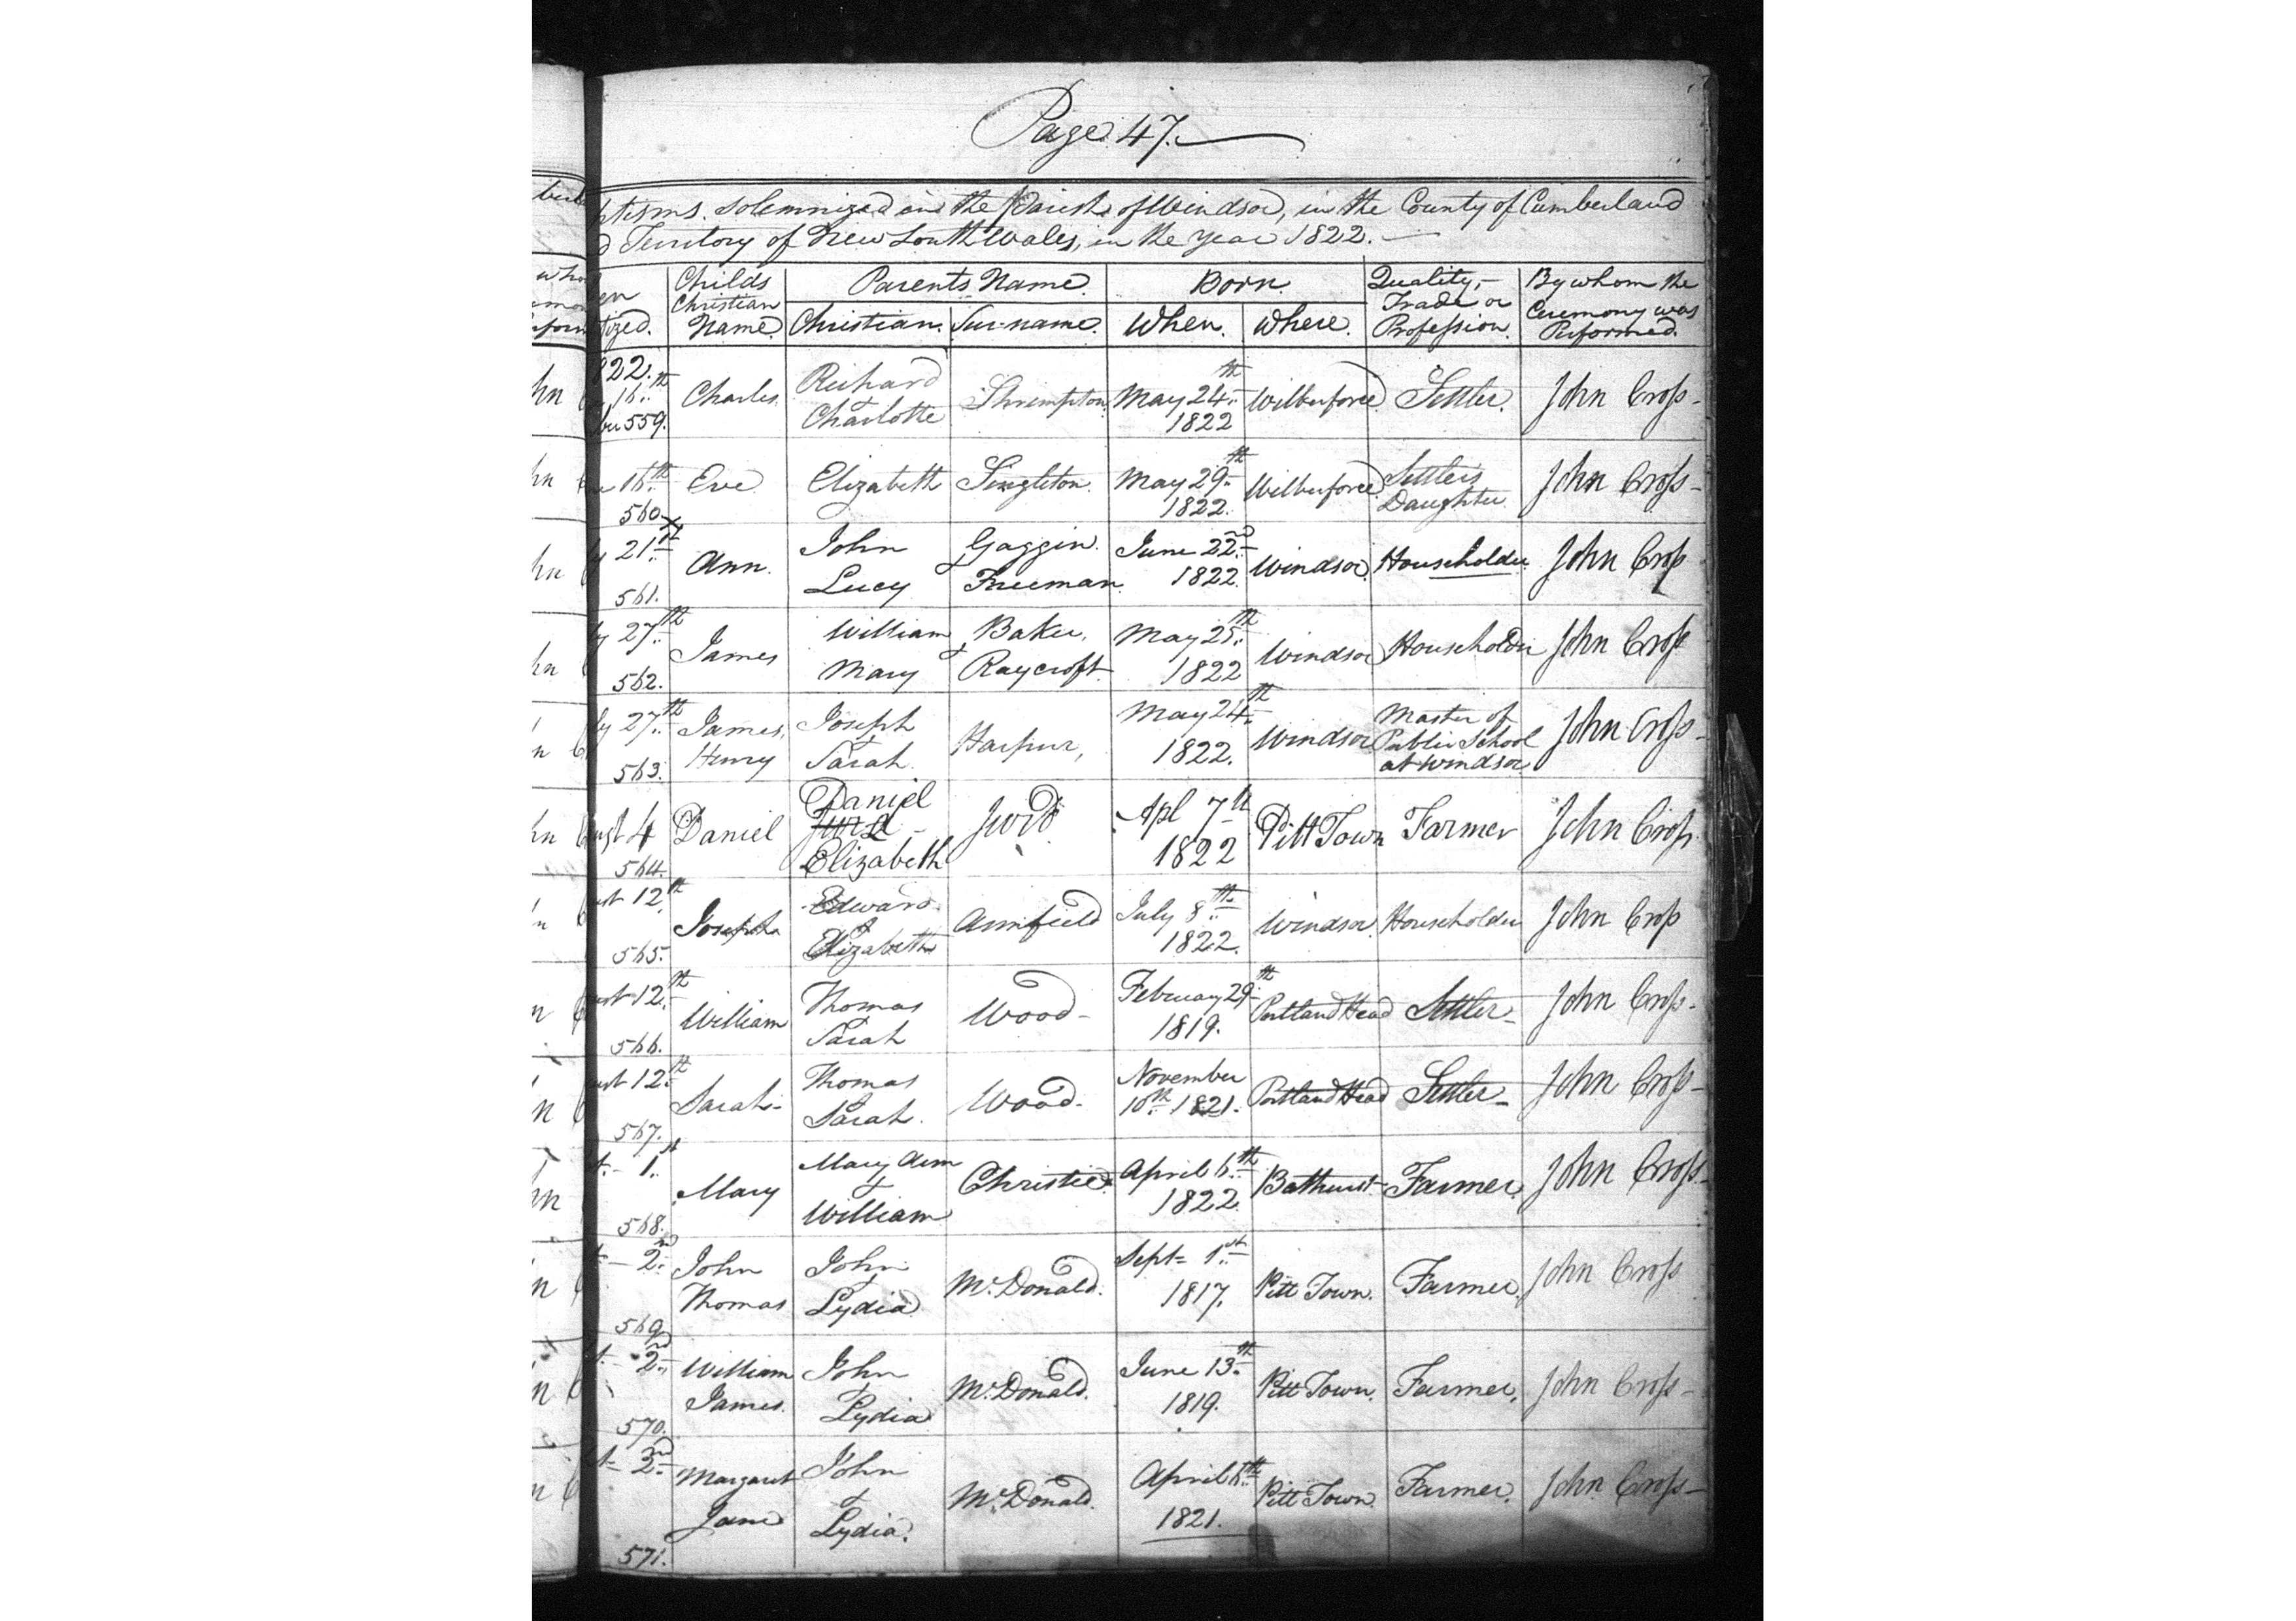 Page 47.
ptisms. solemnized in the Parish of Windsor, in the County of Cumberland
d Territory of New South Wales, in the Year 1822.
Childs Christian Name
Parents Name.
Born.
Quality, Trade or Profession.
By whom the Ceremony was Performed.
tized.
Christian.
Sur-name.
When.
Where.
822. 16th 559. Charles Richard & Charlotte Shrimpton May 24th 1822 Wilberforce Settler. John Cross
16th 560 Eve Elizabeth Singleton. May 29th 1822. Wilberforce Settler's Daughter John Cross
y 21st 561. Ann. John Lucy Gaggin. & Freeman June 22nd 1822. Windsor Householder John Cross
y 27th 562. James William Mary Baker, & Raycroft May 25th 1822 Windsor Householder John Cross
ly 27th 563. James, Henry Joseph & Sarah Harpur, May 24th 1822. Windsor Master of Public School at Windsor John Cross
ugt 4 564. Daniel Daniel Jurd Elizabeth Jurd Apl 7th 1822 Pitt Town Farmer John Cross
ust 12th 565. Joseph Edward & Elizabeth Armfield July 8th 1822. Windsor Householder John Cross
ust 12th 566. William Thomas & Sarah Wood February 29th 1819. Portland Head Settler John Cross
ust 12th 567. Sarah Thomas & Sarah. Wood November 10th 1821. Portland Head Settler John Cross
t. 1st 568. Mary Mary Ann & William Christie April 6th 1822 Bathurst Farmer John Cross
t 2nd 569 John Thomas John & Lydia McDonald. Sept 1st 1817. Pitt Town. Farmer John Cross
t. 2nd 570. William James. John & Lydia McDonald. June 13th 1819. Pitt Town. Farmer, John Cross
t 2nd 571. Margaret Jane John & Lydia. McDonald. April 1821. Pitt Town. Farmer. John Cross